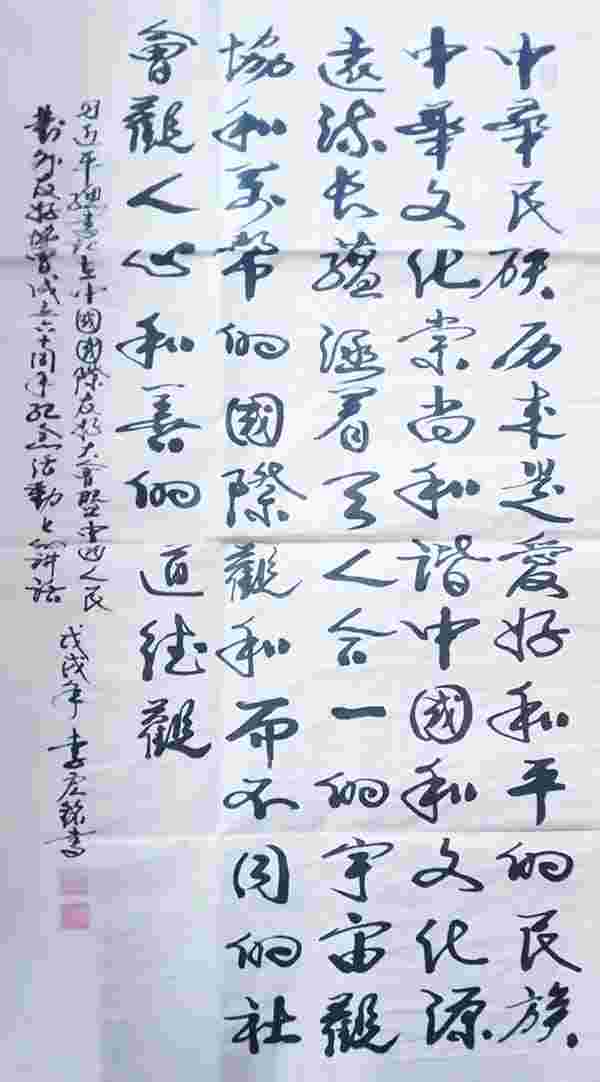 中華民族历来是愛好和平的民族
中華文化崇尚和谐中國和文化源
遠流长蘊涵着天人合一的宇宙觀
協和萬幣的國際觀和而不同的社
會觀人心和善的道德觀
习近平總書记在中國國際友好大會暨中國人民
對外友好協會成立六十周年纪念活動上的讲话
戊戌年 李 書